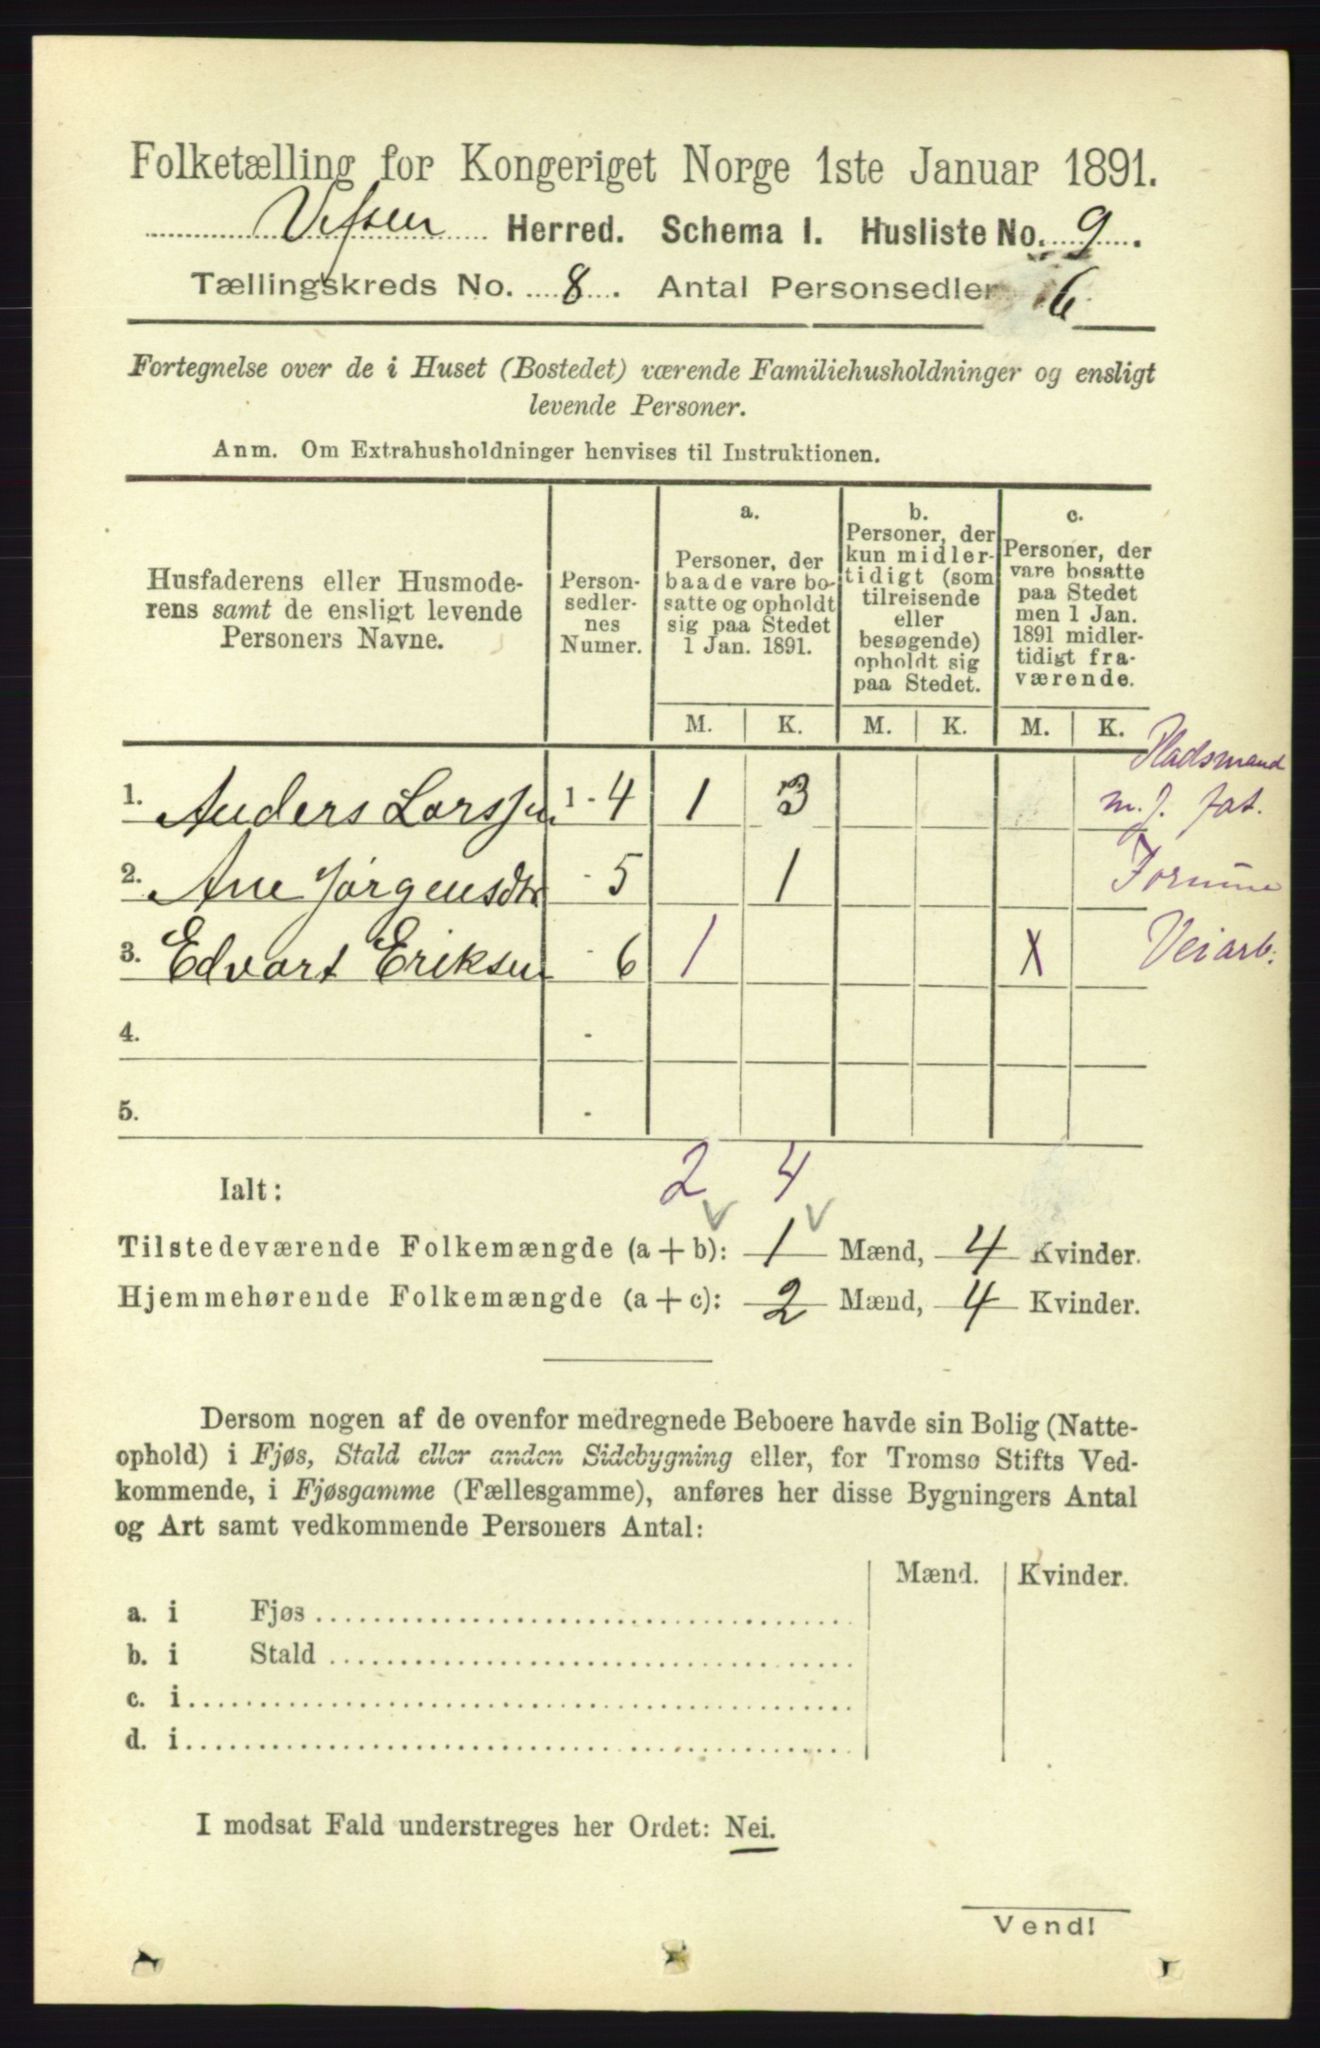 Folketælling for Kongeriget Norge 1ste Januar 1891.
Vefsen Herred. Schema I. Husliste No. 9.
Tællingskreds No. 8. Antal Personsedler 6
Fortegnelse over de i Huset (Bostedet) værende Familiehusholdninger og ensligt
levende Personer.
Anm. Om Extrahusholdninger henvises til Instruktionen.
Husfaderens eller Husmode-
rens samt de ensligt levende
Personers Navne.
Person-
sedler-
nes
Numer.
a.
Personer, der
baade vare bo-
satte og opholdt
sig paa Stedet
1 Jan. 1891.
b.
Personer, der
kun midler-
tidigt (som
tilreisende
eller
besøgende)
opholdt sig
paa Stedet.
c.
Personer, der
vare bosatte
paa Stedet
men 1 Jan.
1891 midler-
tidigt fra-
værende.
M. K. M. K. M. K.
1. Anders Larssen 1 - 4 1 3 Pladsmand
m. j. fat.
2. Ane Jørgensdtr - 5 1
3. Edvart Eriksen - 6 1 X Veiarb.
4. -
5. -
Ialt: 2 4
Tilstedeværende Folkemængde (a + b): 1 Mænd, 4 Kvinder.
Hjemmehørende Folkemængde (a + c): 2 Mænd, 4 Kvinder.
Dersom nogen af de ovenfor medregnede Beboere havde sin Bolig (Natte-
ophold) i Fjøs, Stald eller anden Sidebygning eller, for Tromsø Stifts Ved-
kommende, i Fjøsgamme (Fællesgamme), anføres her disse Bygningers Antal
og Art samt vedkommende Personers Antal:
Mænd. Kvinder.
a. i Fjøs
b. i Stald
c. i
d. i
I modsat Fald understreges her Ordet: Nei.
Vend!